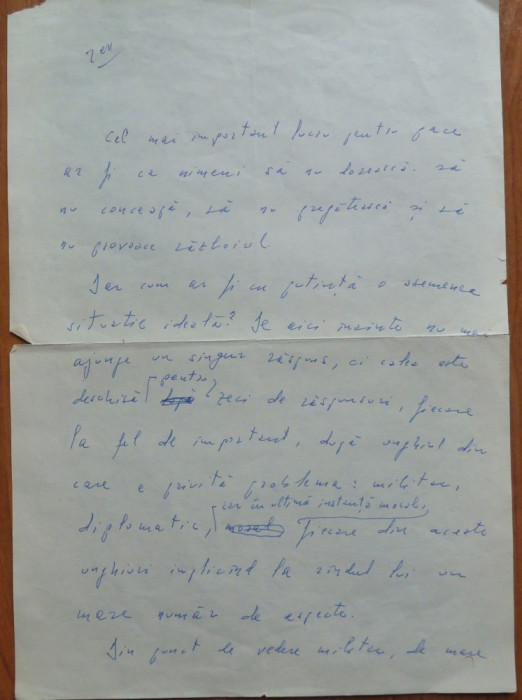 Cel mai important lucru pentru pace
ar fi ca nimeni să nu dorească să
nu conceapă, să nu pregătească și să
nu provoace războiul
Dar cum ar fi cu putință o asemenea
situație ideală? De aici înainte nu mai
ajunge un singur răspuns, ci calea este
deschisă pentru zeci de răspunsuri, fiecare
la fel de important, după unghiul din
care e privită problema: militar,
diplomatic, iar în ultimă instanță moral,
fiecare din aceste
unghiuri implicînd la rîndul lui un
mare număr de aspecte.
Din punct de vedere militar, de mare